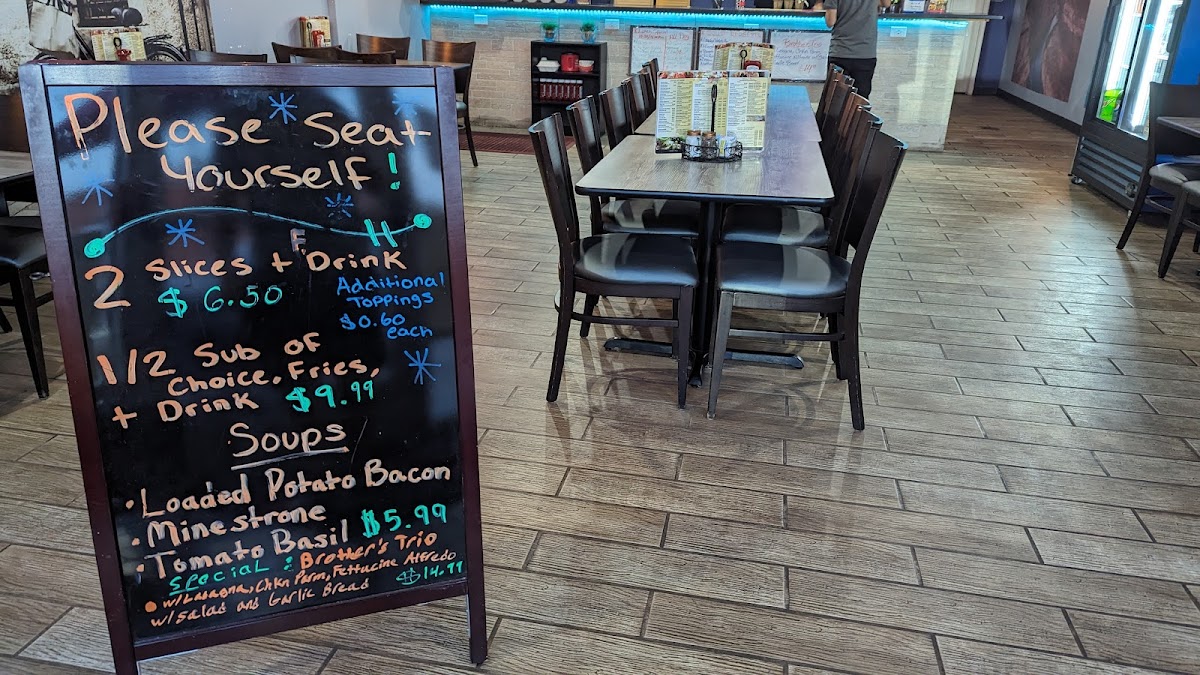 Please Seat
Yourself!
F H
2 Slices + Drink
$6.50
Additional
Toppings
$0.60
each
1/2 Sub of
Choice, Fries,
+ Drink $9.99
Soups
• Loaded Potato Bacon
• Minestrone
• Tomato Basil $5.99
Special: Brother's Trio
• w/Lasagna, Chkn Parm, Fettucine Alfredo
w/Salad and Garlic Bread $14.99